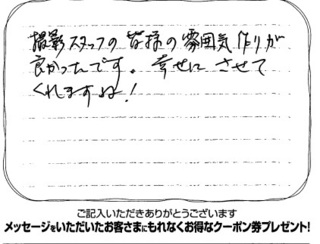 撮影スタッフの皆様の雰囲気作りが
良かったです。幸せに させて
くれますね!
ご記入いただきありがとうございます
メッセージをいただいたお客さまにもれなくお得なクーポン券プレゼント!